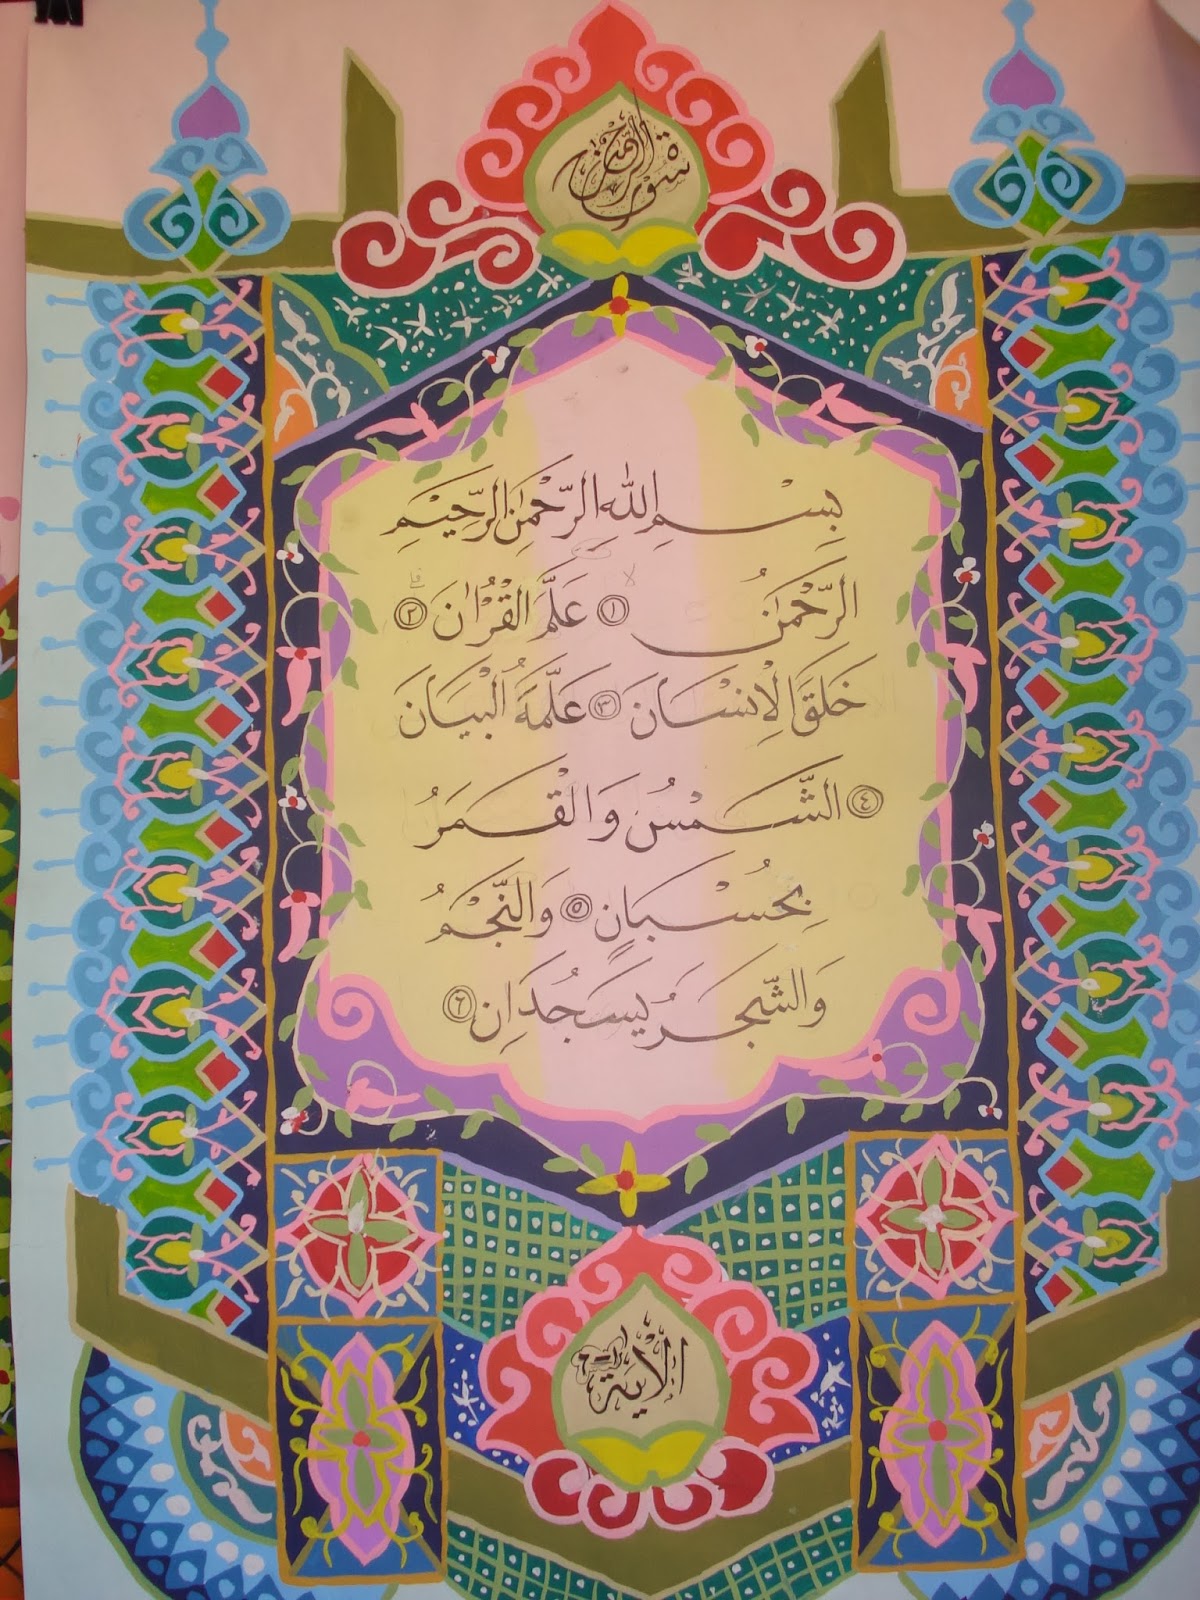 سورة الرحمن
بِسْمِ اللّٰهِ الرَّحْمٰنِ الرَّحِيْمِ
الرَّحْمٰنُ ١ عَلَّمَ الْقُرْاٰنَ ٢
خَلَقَ الْاِنْسَانَ ٣ عَلَّمَهُ الْبَيَانَ
٤ الشَّمْسُ وَالْقَمَرُ
بِحُسْبَانٍ ٥ وَالنَّجْمُ
وَالشَّجَرُ يَسْجُدَانِ ٦
الْاٰية ١-٦